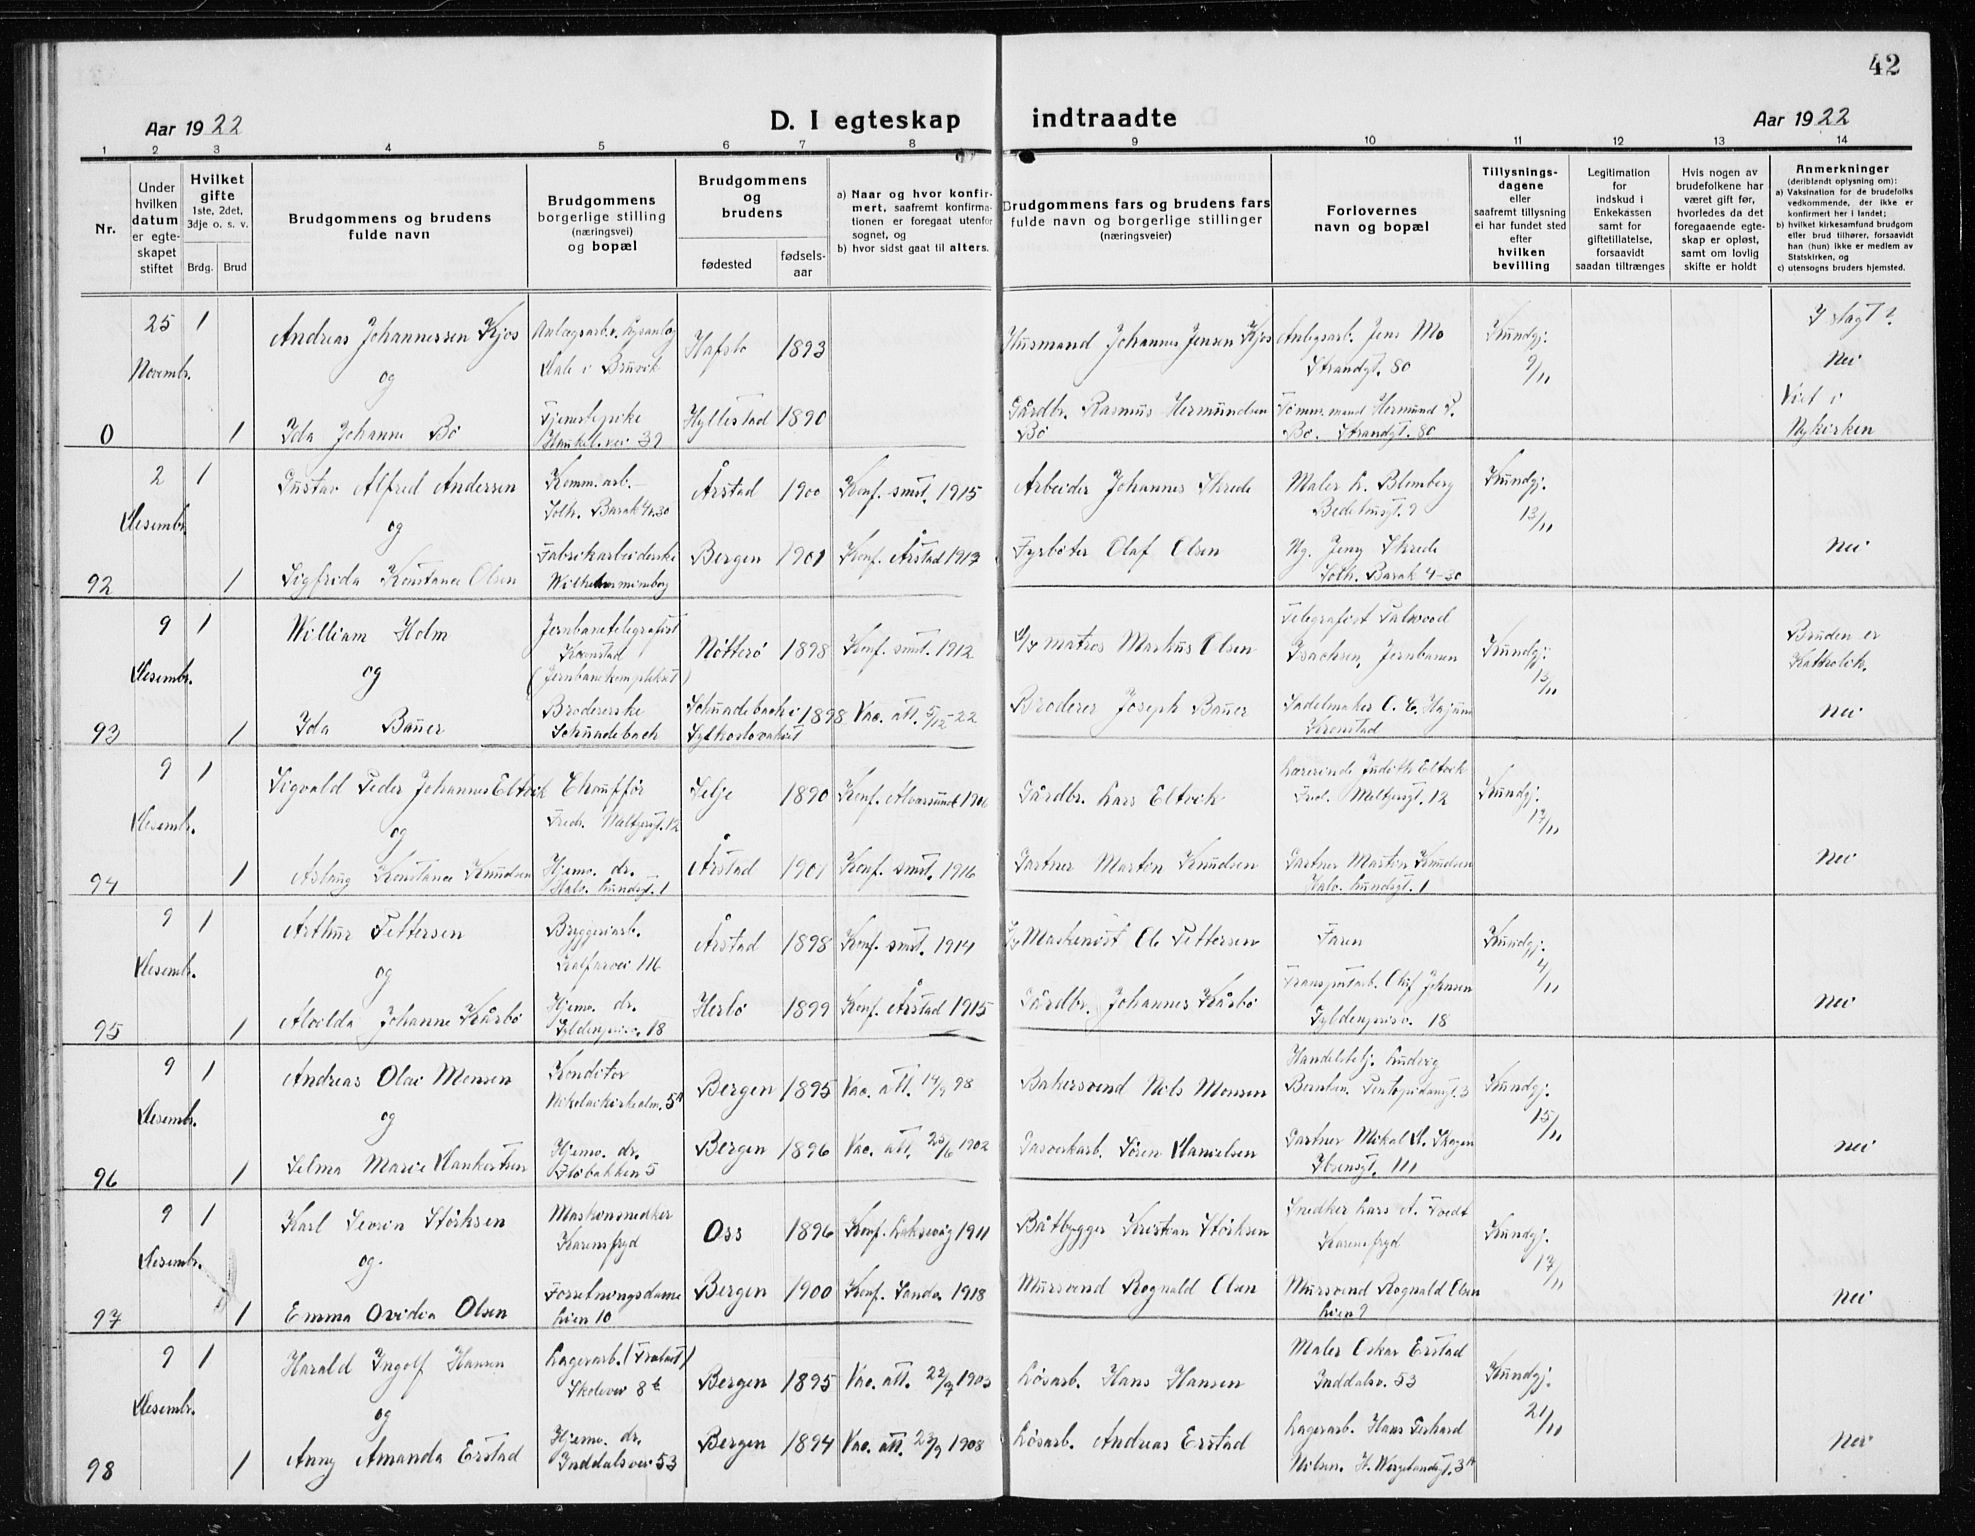 42
Aar 1922
D. I egteskap indtraadte
Aar 1922
1 2 3 4 5 6 7 8 9 10 11 12 13 14
Nr.
Under hvilken datum er egteskapet stiftet
Hvilket gifte
1ste, 2det, 3dje o. s. v.
Brdg. Brud
Brudgommens og brudens fulde navn
Brudgommens borgerlige stilling (næringsvei) og bopæl
Brudgommens og brudens
fødested
fødsels-aar
a) Naar og hvor konfirmert, saafremt konfirmationen er foregaat utenfor sognet, og
b) hvor sidst gaat til alters.
Brudgommens fars og brudens fars fulde navn og borgerlige stillinger (næringsveier)
Forlovernes navn og bopæl
Tillysningsdagene eller saafremt tillysning ei har fundet sted efter hvilken bevilling
Legitimation for indskud i Enkekassen samt for giftetillatelse, forsaavidt saadan tiltrænges
Hvis nogen av brudefolkene har været gift før, hvorledes da det foregaaende egteskap er opløst, samt om lovlig skifte er holdt
Anmerkninger
(deriblandt oplysning om):
a) Vaksination for de brudefolks vedkommende, der ikke er konfirmert her i landet;
b) hvilket kirkesamfund brudgom eller brud tilhører, forsaavidt han (hun) ikke er medlem av Statskirken, og
c) utensogns bruders hjemsted.
25 Novembr. 1 Andreas Johannessen Kjos
Dale i Bruvik
Hafslo 1893
Husmand Johannes Jensen Kjos
Anlegsarb. Jens Mo
Strandgt. 80
Kundgj. 9/11
I slagt?
Nei
og
0 1 Ida Johanne Bö
Tjenestepike
Haukel.vei 39
Hyllestad 1890
Gårdbr. Rasmus Hermundsen Bö
Tömmermand Hermund R. Bö. Strandgt. 80
Viet i Nykirken
2 Desembr. 1 Gustav Alfred Andersen
Komm.arb.
Solh. Barak 4.30
Årstad 1900 Konf. smst. 1915
Arbeider Johannes Skrede
Maler L. Blomberg
Kundgj. 13/11
og
92 1 Sigfrida Konstance Olsen
Fabrikarbeiderske
Wilhelmineborg
Bergen 1901 Konf. Årstad 1917
Fyrböter Olaf Olsen
Ug. Jeny Skrede
Solh. Barak 4-30
Nei
9 Desembr. 1 William Holm
Jernbanetelegrafist
Kronstad
(Jernbanekomplekset)
Nötterö 1898 Konf. smst. 1912
Matros Markus Olsen
Telegrafist
Isachsen, Jernbanen
Kundgj. 13/11
Bruden er Katholik.
og
93 1 Ida Bauer
Broderske
Schnadebach
Schnadebach i
1898 Vac. att. 5/12-22
Broderer Joseph Bauer
Sadelmaker C. E.
Kronstad
Nei
9 Desembr. 1 Sigvald Peder Johannes Eltvik
Chaufför
Fredr. Meltzersgt. 12
Selje 1890 Konf. Alversund 1906
Gårdbr. Lars Eltvik
Lærerinde Judith Eltvik
Fred. Meltzersgt. 12
Kundgj. 17/11
og
94 1 Aslaug Konstance Knudsen
Hjemv. dr.
Halv. Lundsgt. 1
Årstad 1901 Konf. smst. 1916
Gartner Martin Knudsen
Gartner Martin Knudsen
Halv. Lundsgt. 1
Nei
9 Desembr. 1 Arthur Pettersen
Bryggeriarb.
Kalfarvei 116
Årstad 1898 Konf. smst. 1914
Maskinist O. Pettersen
Faren
Kundgj. 4/11
og
95 1 Alvilda Johanne Kårbö
Hjemv. dr.
Gyldenprisv. 18
Herlö 1899 Konf. Årstad 1915
Gårdbr. Johannes Kårbö
Transportarb. Olaf Johnsen
Gyldenprisv. 18
Nei
9 Desembr. 1 Andreas Olai Monsen
Konditor
Nikolaikirkealm. 5a
Bergen 1895 Vac. att. 14/9 98
Bakersvend Nils Monsen
Handelsbetj. Ludvig
Berntsen. Pontopidansgt. 3
Kundgj. 15/11
og
96 1 Selma Marie Dankertsen
Hjemv. dr.
Flöibakken 5
Bergen 1896 Vac. att. 25/6 1902
Gasverkarb. Sören Danielsen
Gartner Mikal D. Skagen
Ibsensgt. 111
Nei
9 Desembr. 1 Karl Severin Störksen
Maskinsnedker
Karensfryd
Oss 1896 Konf. Laksevåg 1911
Båtbygger Kristian Störksen
Snedker Lars A. Tvedt
Karensfryd
Kundgj. 17/11
og.
97 1 Emma Ovidia Olsen
Forretningsdame
Lien 10
Bergen 1900 Konf. Sandv. 1918
Mursvend Rognald Olsen
Mursvend Rognald Olsen
Lien 9
Nei
9 Desembr. 1 Harald Ingolf Hansen
Lagerarb.
Skolevei 8b
Bergen 1895 Vac. att. 22/9 1903
Lösarb. Hans Hansen
Maler Oskar Erstad
Inddalsv. 53
Kundgj. 21/11
og
98 1 Anny Amanda Erstad
Hjemv. dr.
Inddalsvei 53
Bergen 1894 Vac. att. 23/9 1908
Lösarb. Andreas Erstad
Lagerarb. Hans Gerhard
Nilsen. H. Wergelandsgt. 3a
Nei